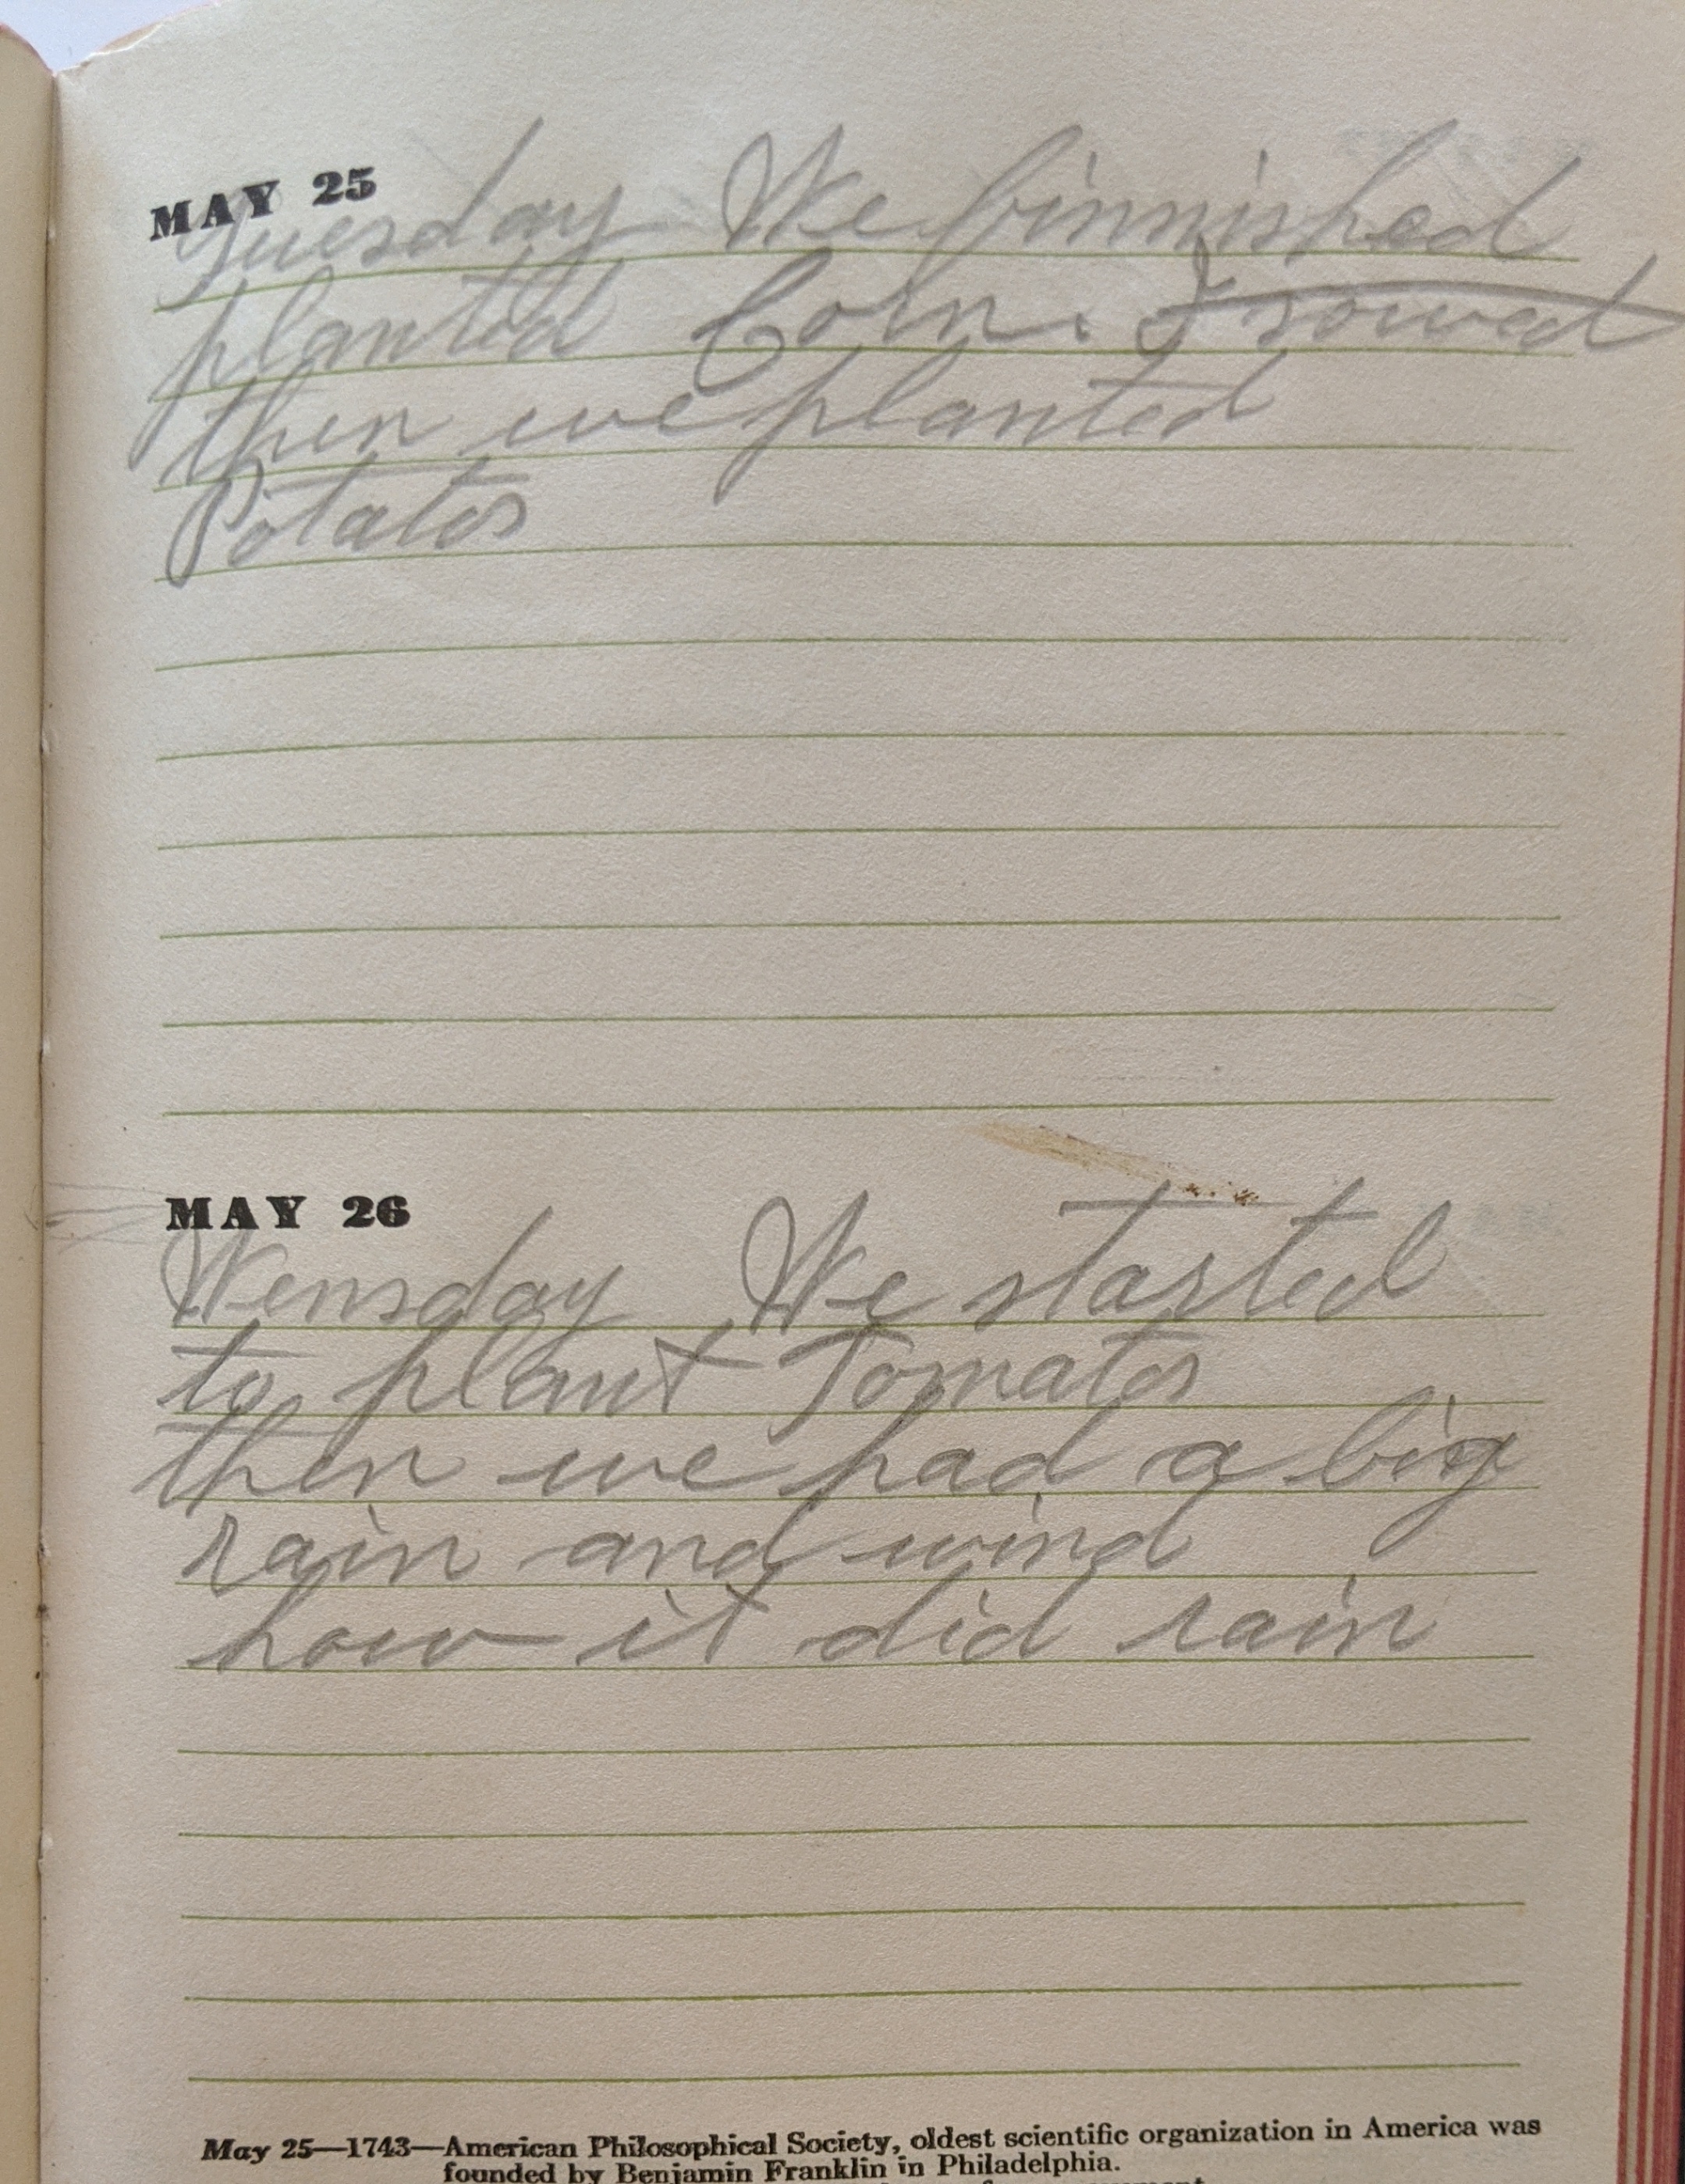 MAY 25
Tuesday We finnished
planted Corn. I rowed
then we planted
Potatos
MAY 26
Wensday We started
to plant Tomatos
then we had a big
rain and wind
how it did rain
May 25—1743—American Philosophical Society, oldest scientific organization in America was
founded by Benjamin Franklin in Philadelphia.